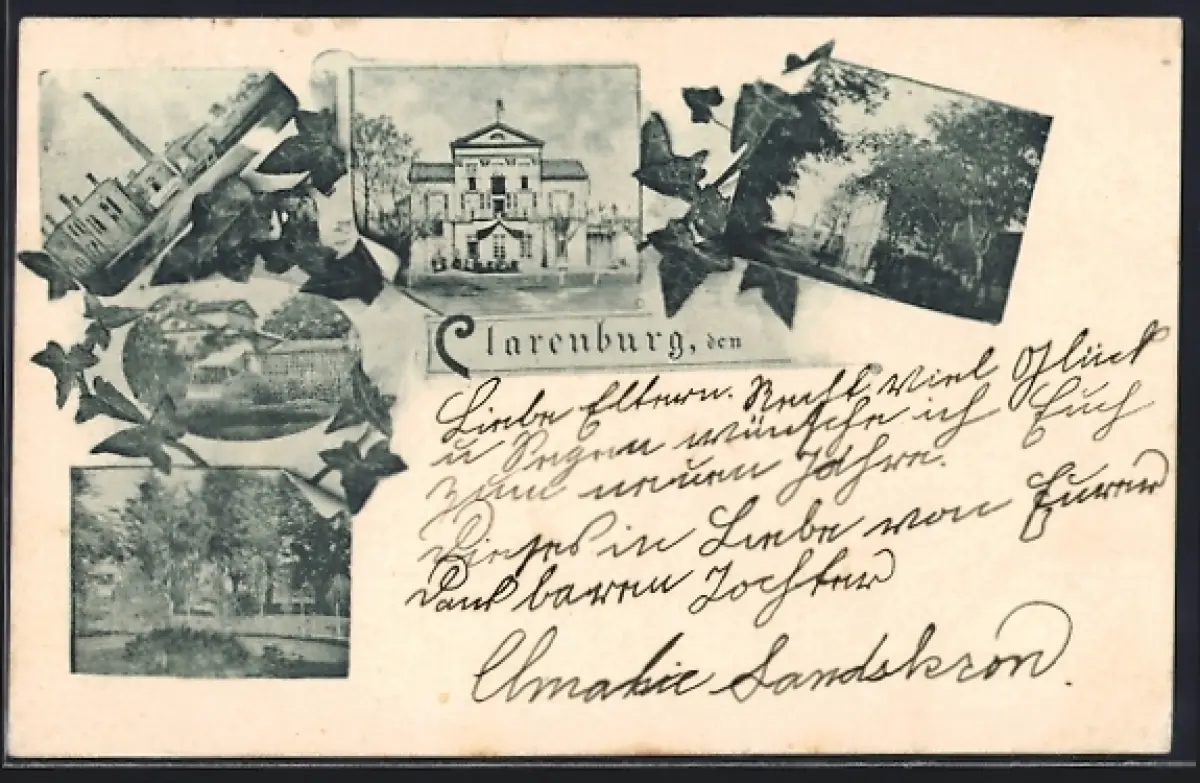 Clarenburg, den
Liebe Eltern. Recht viel Glück
u Segen wünsche ich Euch
zum neuen Jahre.
Dieses in Liebe von Eurer
Dankbaren Tochter
Amalie Landskron.